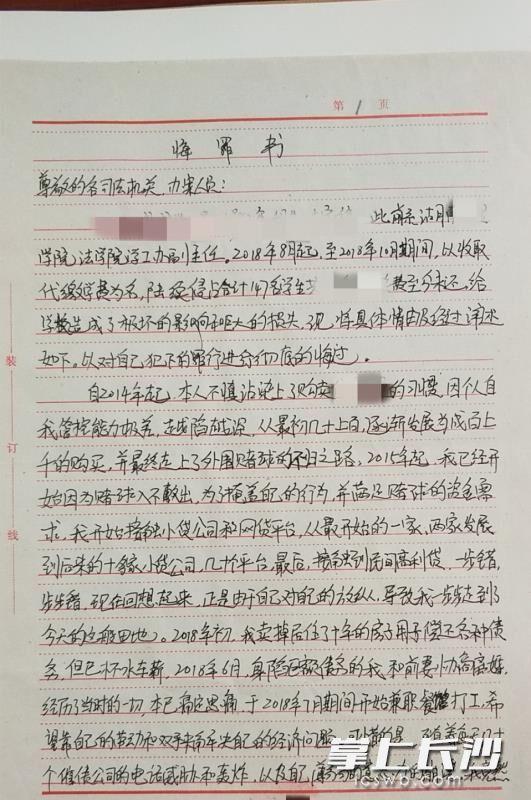 第 1 页
悔罪书
尊敬的各司法机关、办案人员:
学院法学院学工办副主任。2018年8月起,至2018年10月期间,以收取
代缴学费为名,陆续侵占合计147名学生 费至今未还,给
学校造成了极坏的影响和巨大的损失,现将具体情由及经过阐述
如下。以对自己犯下的罪行进行彻底的悔过。
自2014年起,本人不慎沾染上了购买 的习惯,因个人自
我管控能力极差,越陷越深,从最初几十上百,逐渐发展到成百上
千的购买,并最终走上了外围赌球的不归之路。2015年起,我已经开
始因为赌球入不敷出,为了掩盖自己的行为,并满足赌球的资金需
求。我开始接触小贷公司和网贷平台,从最开始的一家、两家发展
到后来的十多家小贷公司,几十个平台。最后,接触到民间高利贷,一步错,
步步错,现在回想起来,正是由于自己对自己的放纵,导致我一步步走到了
今天的这般田地。2018年初,我卖掉居住了十年的房子用于偿还各种债
务,但已杯水车薪,2018年6月,身陷巨额债务的我和前妻协商离婚,
经历了当时的一切,本已痛定思痛,于2018年7月期间开始兼职 打工,希
望靠自己的劳动和双手来解决自己的经济问题,可惜的是,
个催债公司的电话威胁和轰炸,以及自己
装
订
线
掌上长沙
icswb.com